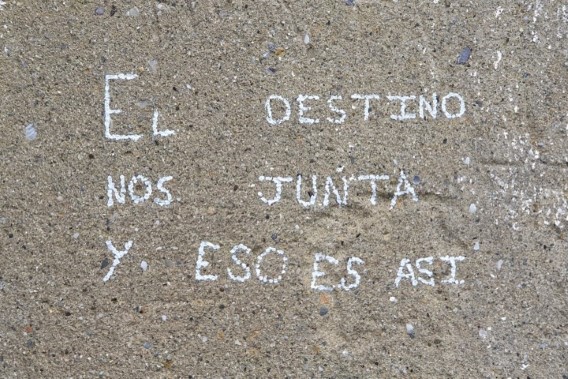 EL DESTINO
NOS JUNTA
Y ESO ES ASI